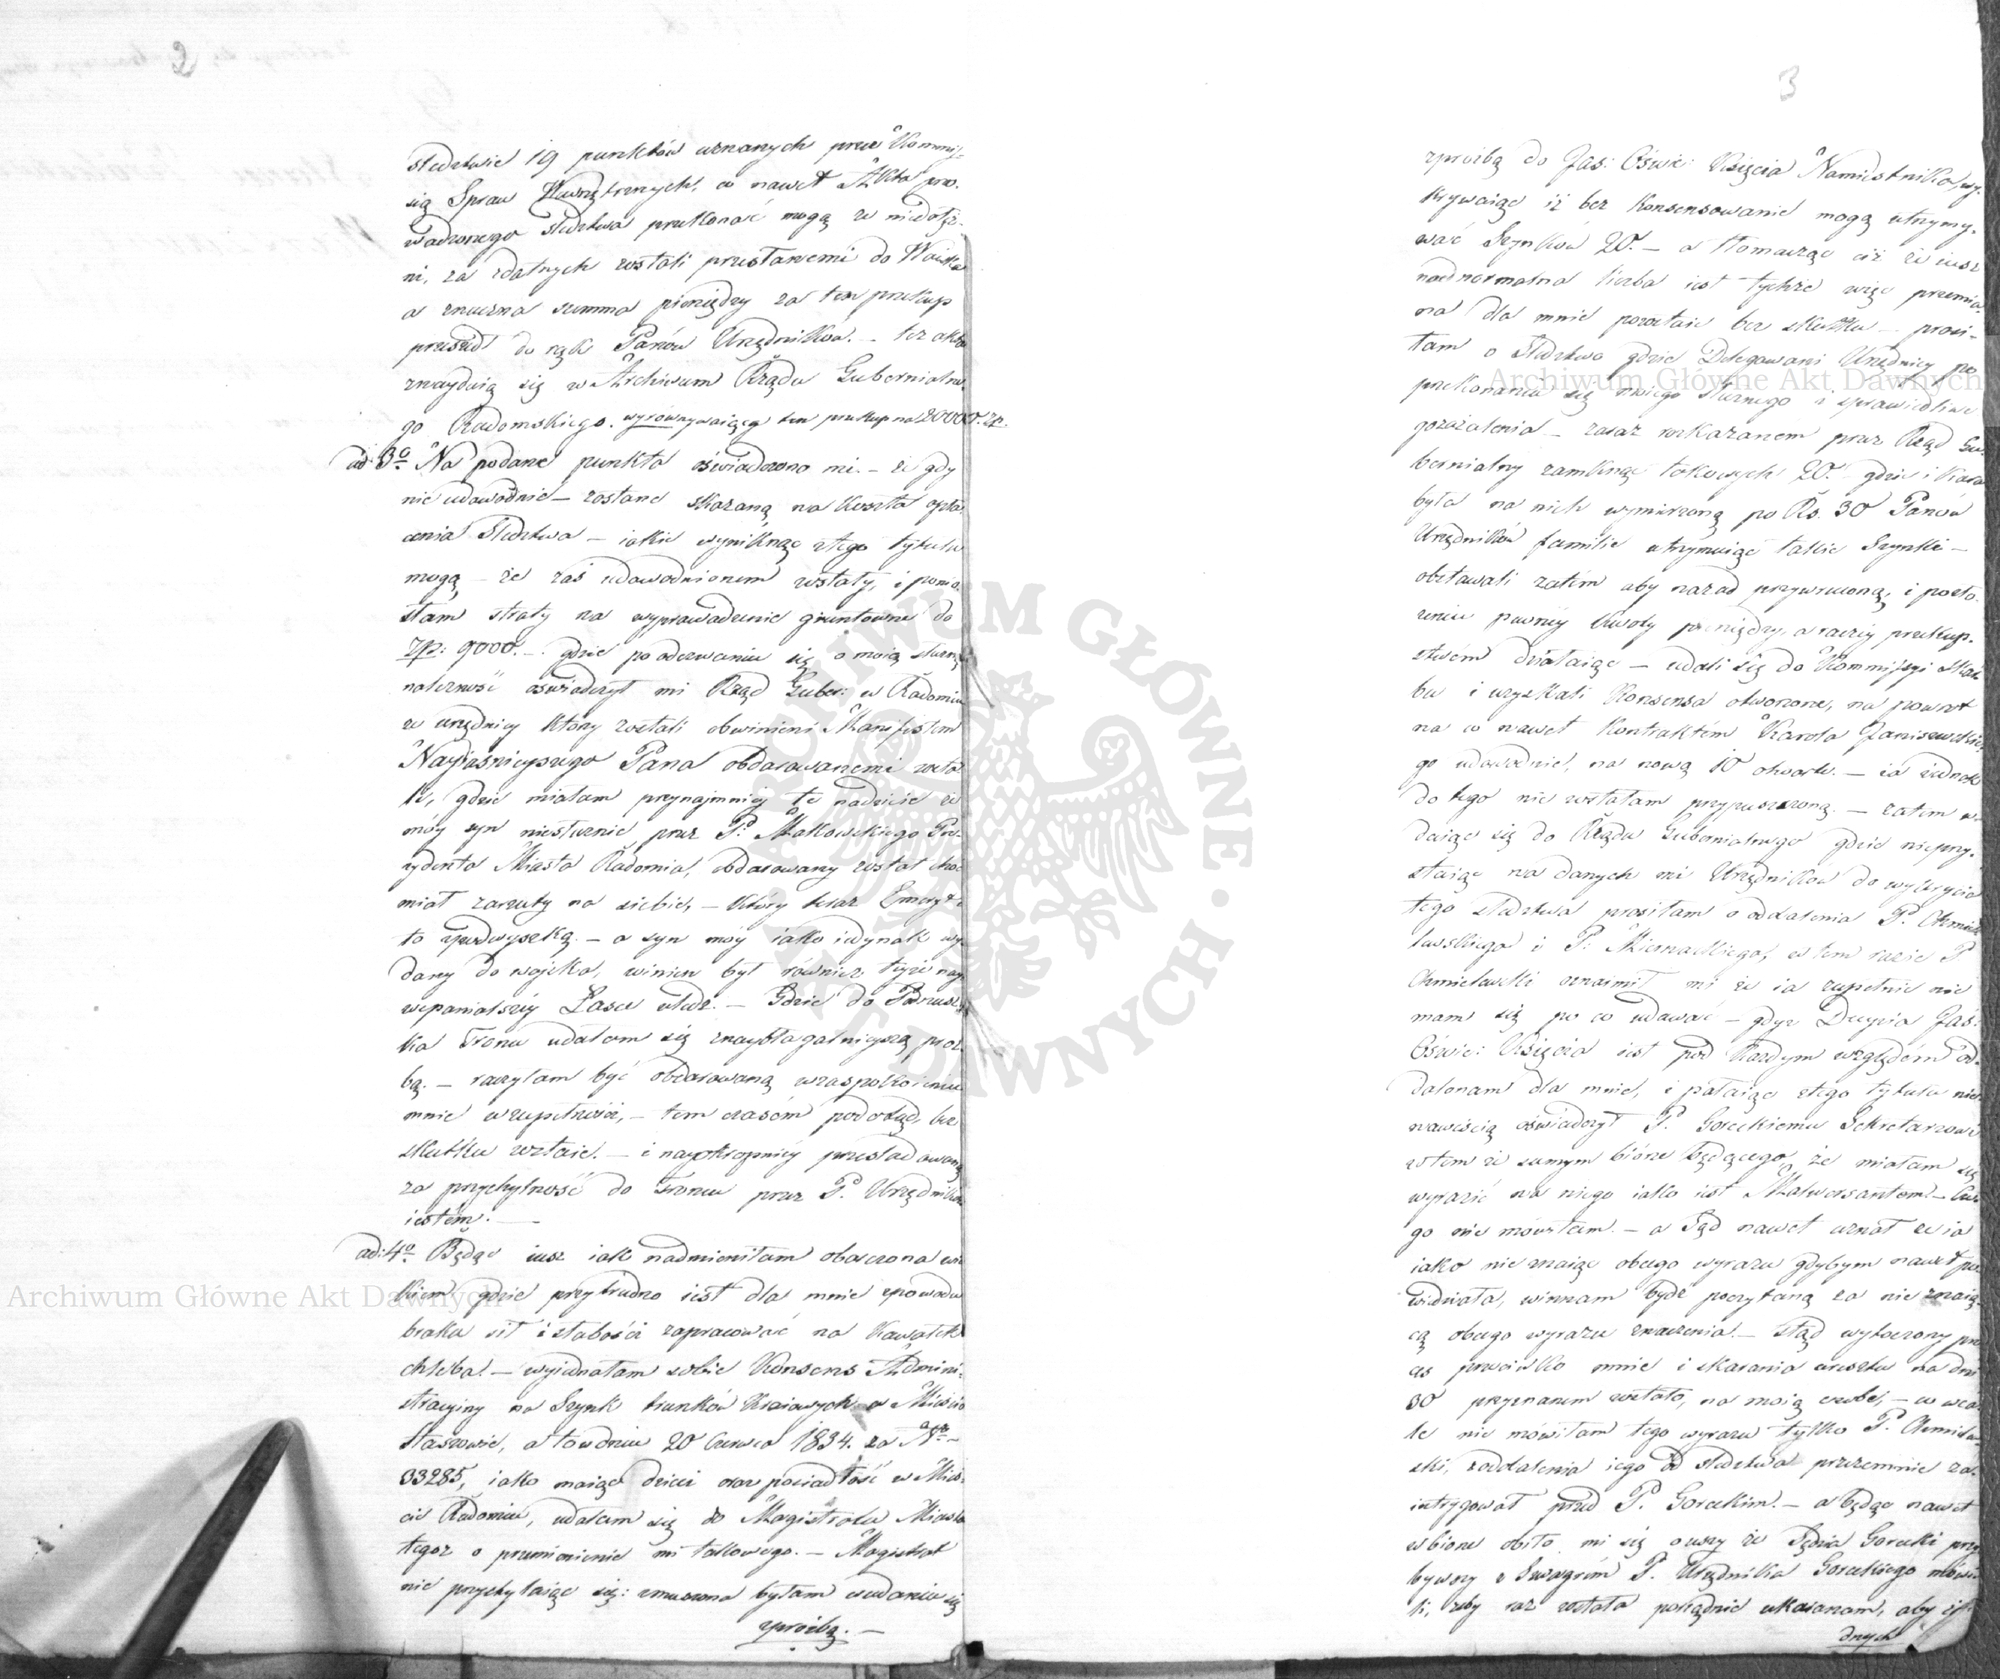 2
śledztwie 19 punktów uznanych przez Kommis-
sią Spraw Wewnętrznych, co nawet Akta pro-
wadzonego śledztwa przekonać mogą że niedołęż-
ni, za zdatnych zostali przestawemi do Woiska
a znaczna summa pieniędzy za ten przekup
przeszedł do rąk Panów Urzędników. — też akta
znayduią się w Archiwum Rządu Gubernialne-
go Radomskiego. wyrównywaiącey ten przekup na 20000 zp.
ad: 3o Na podane punkta oświadczono mi — że gdy
nie udowodnie — zostane skazaną na koszta opła-
cenia Śledztwa — iakie wyniknąć z tego tytułu
mogą — że zaś udowodnionem zostały, i ponio-
słam straty na wyprowadzenie gruntowne do
zp: 9000. — gdzie po odezwaniu się o moią słuszną
należność oświadczył mi Rząd Guber: w Radomiu
że urzędnicy który zostali obwinieni Manifestem
Nayiaśnieyszego Pana obdarowanemi zosta-
li, gdzie miałam przynajmniey te nadzieie że
moy syn niesłusznie przez P. Makowskiego Pre-
zydenta Miasta Radomia, obdarowany został choć
miał zarzuty na siebie, — który teraz Emery-
to — a syn móy iako iedynak wy-
dany do wojska, winien był również teyże nay-
wspanialszey Łasce uledz. — Gdzie do Podnusz-
ka Tronu udałam się z naybłagalnieyszą proź-
bą. — raczyłam być obdarowaną w zaspokoieniu
mnie w zupełności, — tem czasem podotąd, bez
skutku zostaie. — i nayokropniey prześladowaną
za przychylność do Tronu przez P. Urzędników
iestem. —
ad: 4o Będąc iusz iak nadmieniłam obarczona wie-
kiem gdzie przytrudno iest dla mnie z powodu
braku sił i słabości zapracować na kawałek
chleba. — wyiednałam sobie Konsens Admini-
stracyiny na Szynk trunków Kraiowych w Mieście
Staszowie, a to w dniu 20 Czerwca 1834. za Nr
33285, iako maiąca dzieci oraz posiadłość w Mieś-
cie Radomiu, udałam się do Magistratu Miasta
tegoż o przemienienie mi takowego. — Magistrat
nie przychylaiąc się: zmuszona byłam w udaniu się
z proźbą. —
3
z proźbą do Jaś: Oświe: Xsięcia Namiestnika, wy-
krywaiąc iż bez Konsensowanie mogą utrzymy-
wać Szynków 20. — a tłomacząc się że iusz
nadnormalna liczba iest tychże więc przemia-
na dla mnie pozostaie bez skutku — prosi-
łam o Śledztwo gdzie Delegowani Urzędnicy po
przekonaniu się moiego słusznego i sprawiedliwe-
go żalenia — zaraz rozkazanem przez Rząd Gu-
bernialny zamknąć takowych 20. gdzie i Kara
była na nich wymierzoną po Rs. 30 Panów
Urzędników familie utrzymuiąc takie Szynki —
obstawali zatem aby nazad przywrócone, i poło-
żeniu pewney kwoty pieniędzy, a raczey przekup-
stwem działaiąc — udali się do Kommissyi Skar-
bu i uzyskali Konsensa otworzone, na powrot
na co nawet Kontraktem Karola Janiszewskie-
go udowodnie, na nową 10 otwarte. — ia iednak
do tego nie zostałam przypuszczoną. — zatem u-
daiąc się do Rządu Gubernialnego gdzie nieprzy-
staiąc na danych mi Urzędników do wykrycia
tego śledztwa prosiłam o oddalenia P. Chmie-
lewskiego i P. Miernackiego, w tem razie P
Chmielewski oznaimił mi że ia zupełnie nie
mam się po co udawać — gdyż Decyzia Jaś:
Oświe: Xsięcia iest pod Każdym względem od-
dalonam dla mnie, i pałaiąc z tego tytułu nie-
nawiścią oświadczył P. Goreckiemu Sekretarzowi
w tem że samym biórze będącego, że miałam się
wyrazić na niego iako iest Malwersantem. — Cze-
go nie mówiłam. — a Sąd nawet uznał że ia
iako nie znaiąc obcego wyrazu gdybym nawet po-
wiedziała, winnam bydź poczytaną za nie znaią-
cą obcego wyrazu znaczenia. — stąd wytoczony pro-
ces przeciwko mnie i skarania aresztu na dni
30 przyznanem zostało, na moią osobę, — w wca-
le nie mówiłam tego wyrazu tylko P. Chmielew-
ski, z oddalenia iego od śledztwa przezemnie za-
intrygował przed P. Goreckim. — a będąc nawet
w biorze obiło mi się o uszy że Sędzia Gorecki przy-
bywszy z Szwagrem P. Urzędnika Goreckiego mówi-
li, żeby raz została porządnie ukaranam, aby
dnych
Archiwum Główne Akt Dawnych
Archiwum Główne Akt Dawnych
ARCHIWUM GŁÓWNE · AKT DAWNYCH ·